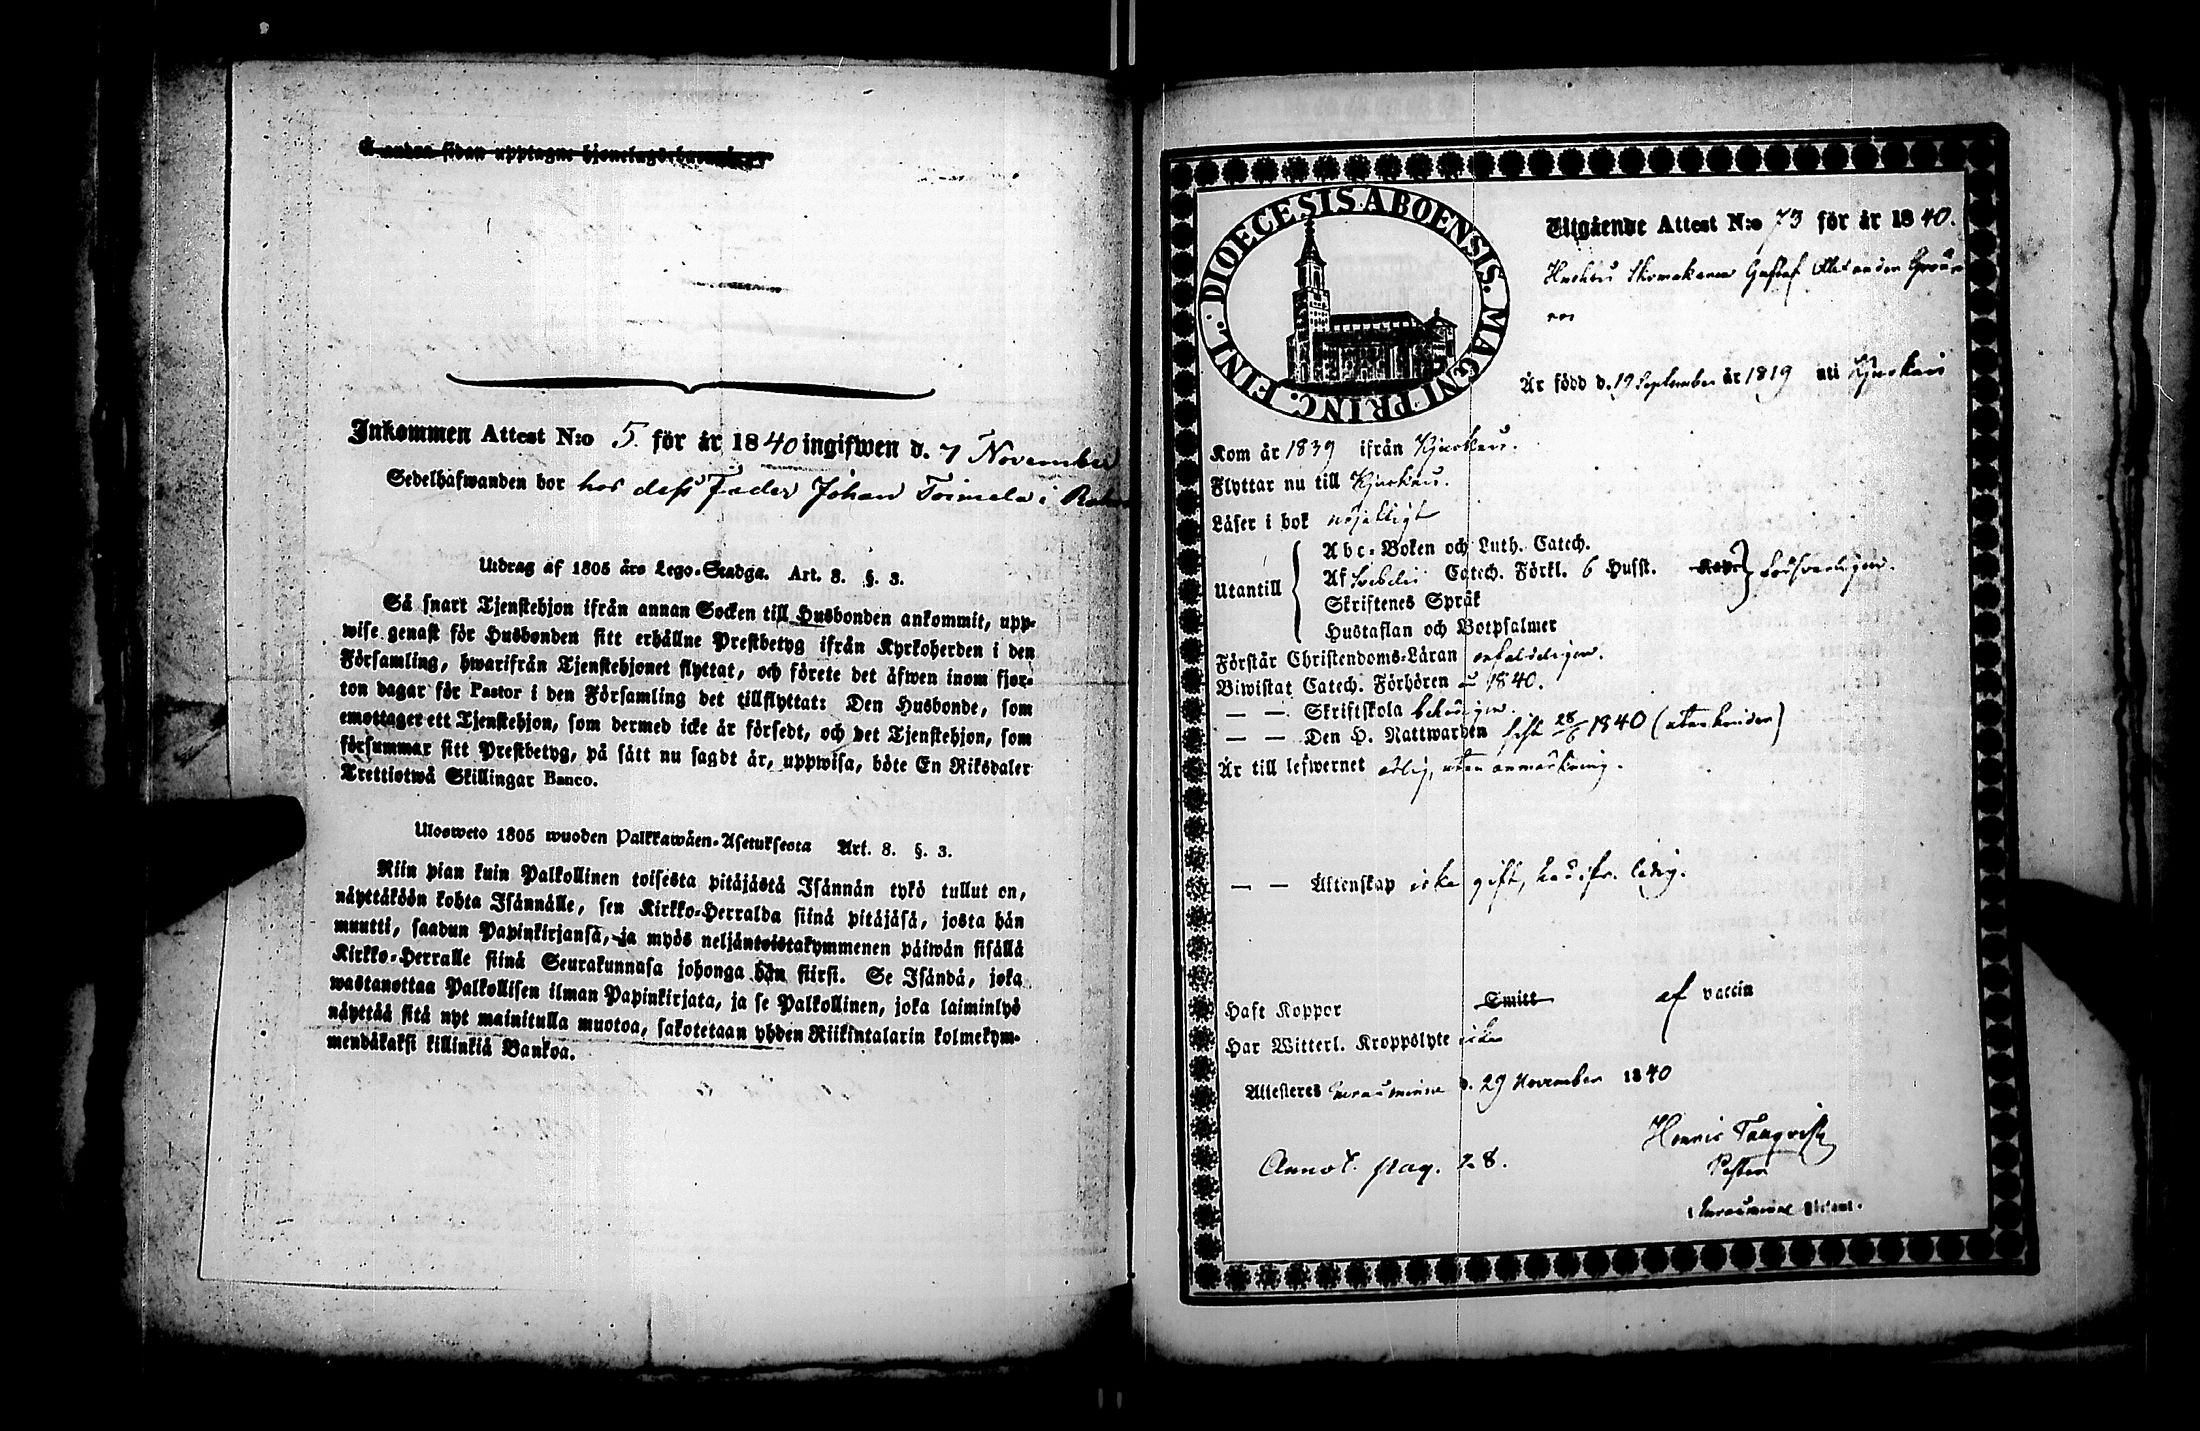 å andra sidan upptagne
Inkommen Attest N:o 5. för år 1840 ingifwen d. 7 November
Sedelhafwanden bor hos dess Fader Johan Toimela i
Utdrag af 1805 års Lego-Stadga. Art. 8. §. 3.
Så snart Tjenstehjon ifrån annan Socken till Husbonden ankommit, upp-
wise genast för Husbonden sitt erhållne Prestbetyg ifrån Kyrkoherden i den
Församling, hwarifrån Tjenstehjonet flyttat, och förete det äfwen inom fjor-
ton dagar för Pastor i den Församling det tillflyttat: Den Husbonde, som
emottager ett Tjenstehjon, som dermed icke är försedt, och det Tjenstehjon, som
försummar sitt Prestbetyg, på sätt nu sagdt är, uppwisa, böte En Riksdaler
Trettiotwå Skillingar Banco.
Ulosweto 1805 wuoden Palkkawäen-Asetuksesta Art. 8. §. 3.
Niin pian kuin Palkollinen toisesta pitäjästä Isännän tykö tullut on,
näyttäköön kohta Isännälle, sen Kirkko-Herralda siinä pitäjäsä, josta hän
muutti, saadun Papinkirjansa, ja myös neljäntoistakymmenen päiwän sisällä
Kirkko-Herralle siinä Seurakunnasa johonga hän siirsi. Se Isändä, joka
wastanottaa Palkollisen ilman Papinkirjata, ja se Palkollinen, joka laiminlyö
näyttää sitä nyt mainitulla muotoa, sakotetaan yhden Riikintalarin kolmekym-
mendäkaksi killinkiä Bankoa.
DIOECESIS ABOENSIS. MAGNI PRINC. FINL.
Utgående Attest N:o 73 för år 1840.
Skomakaren Gustaf Alexander
Är född d. 19 September år 1819 uti Kjuskais
Kom år 1839 ifrån Kjuskais.
Flyttar nu till Kjuskais.
Läser i bok nöjaktigt
Utantill
Abc-Boken och Luth. Catech.
Af Svebelii Catech. Förkl. 6 Husst.
Skriftenes Språk
Hustaflan och Botpsalmer
försvarligen.
Förstår Christendoms-Läran enfaldeligen.
Biwistat Catech. Förhören 1840.
— — Skriftskola behörigen.
— — Den H. Nattwarden sist 28/6 1840 (utan hinder)
Är till lefwernet ärlig, utan anmärkning.
— — Äktenskap icke gift, ledig.
Haft Koppor Smitt af vaccin
Har Witterl. Kroppslyte icke
Attesteres Euraåminne d. 29 November 1840
Henric Tangvist
Pastor
i Euraåminne
Annot. pag. 28.